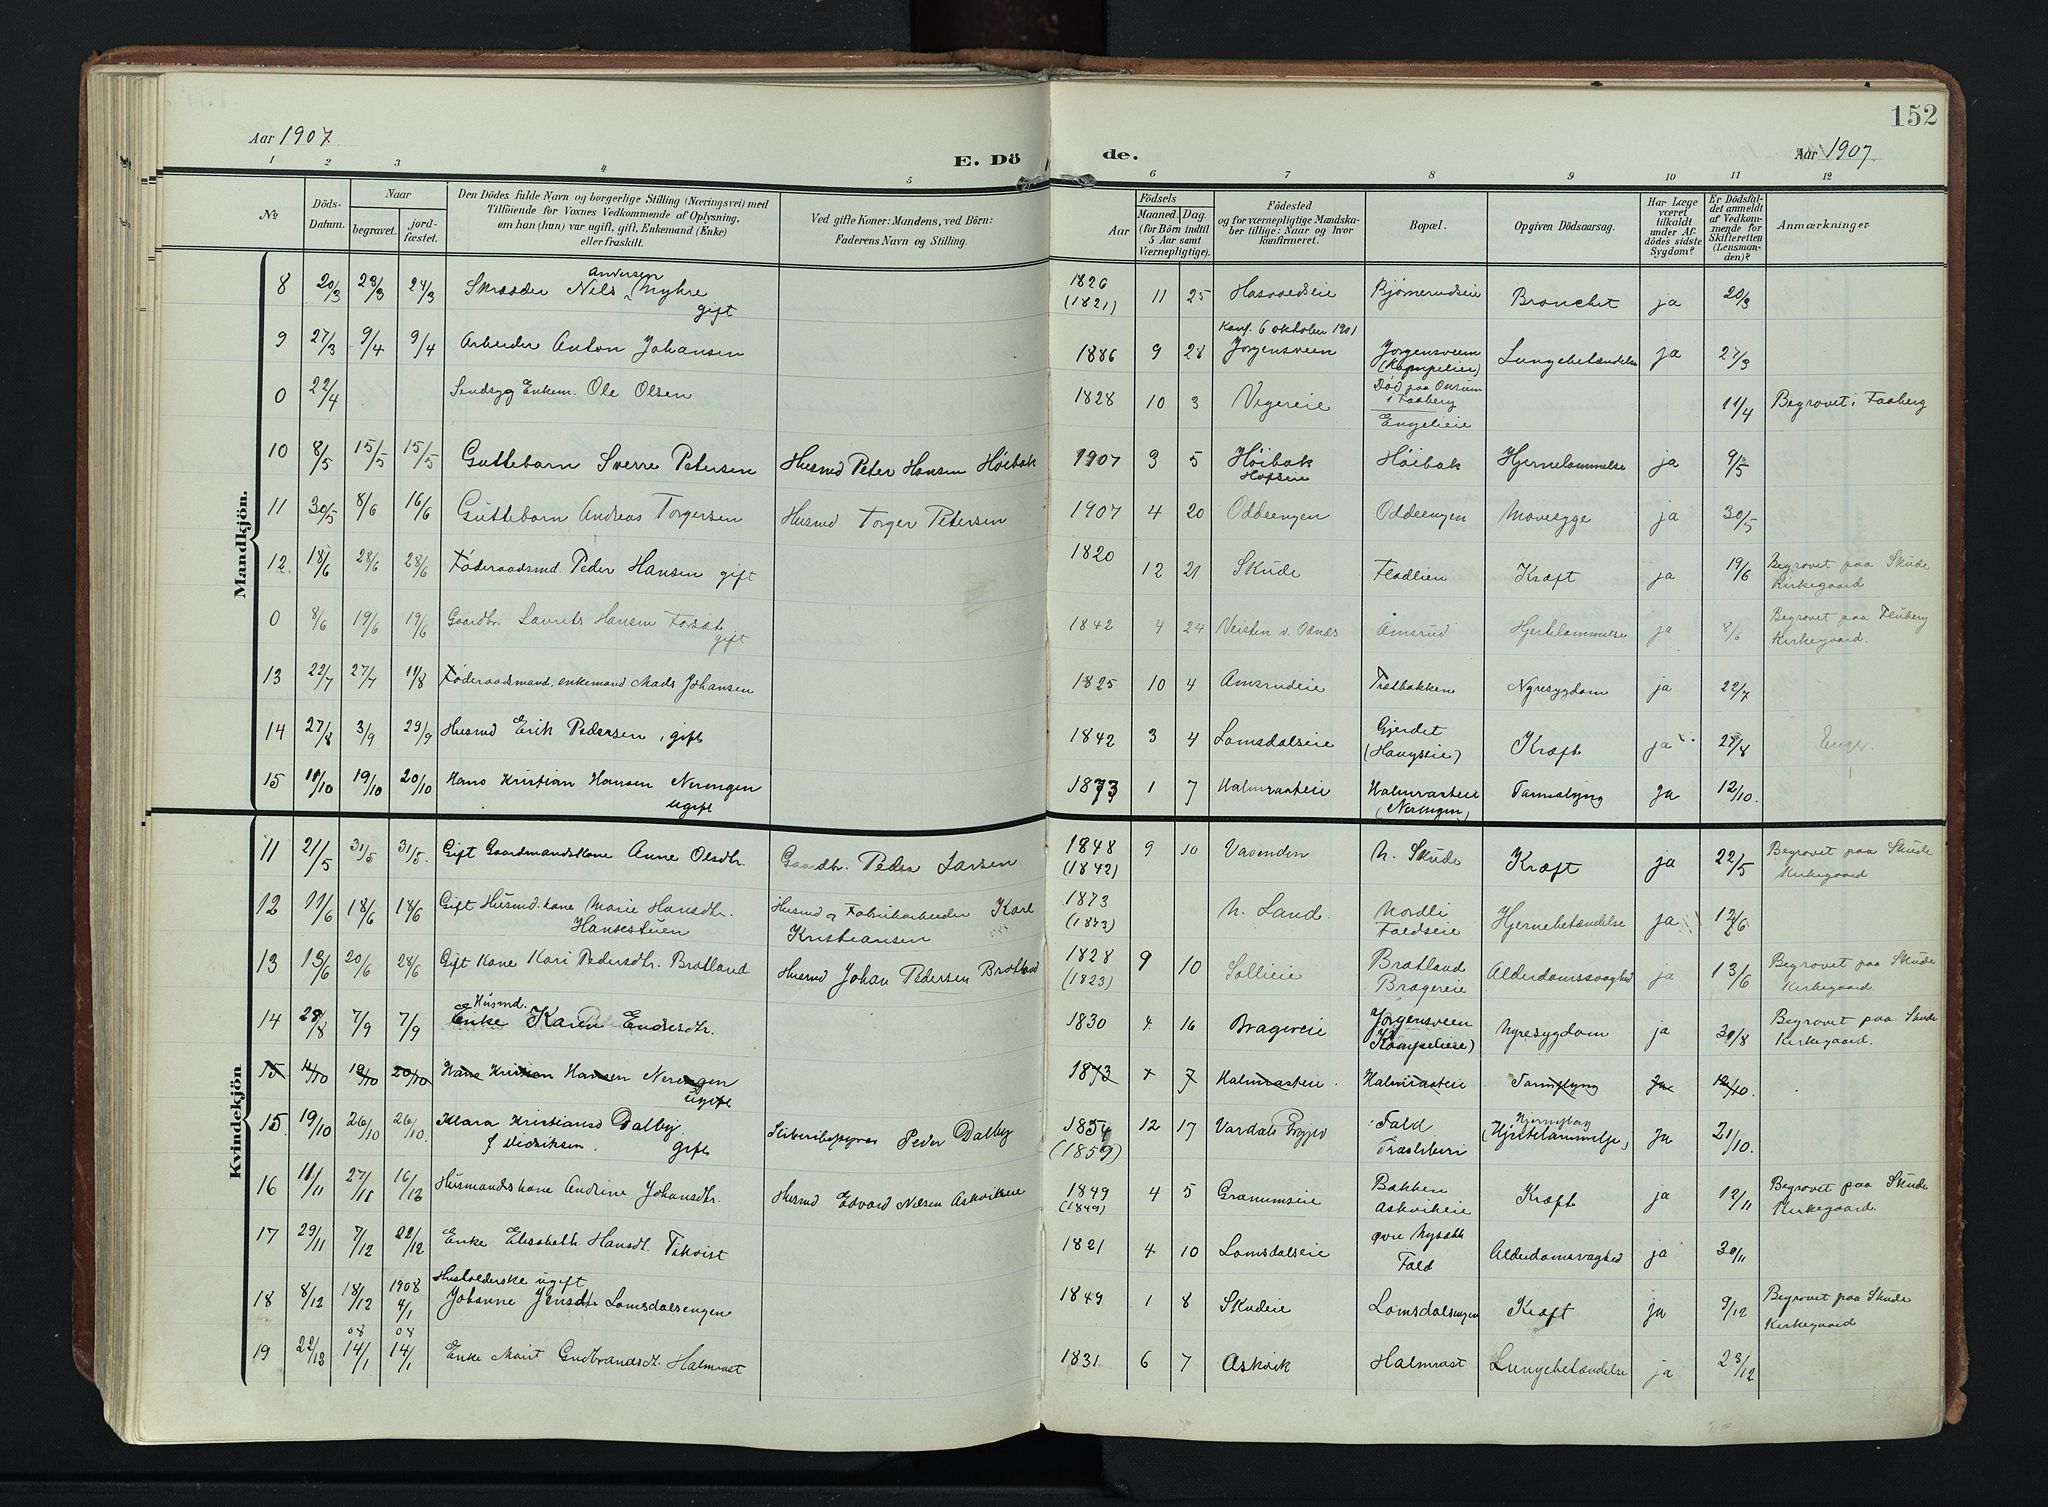 152
Aar 1907
E. Dö de.
Aar 1907.
1 2 3 4 5 6 7 8 9 10 11 12
No.
Döds-Datum.
Naar
begravet.
jordfæstet.
Den Dödes fulde Navn og borgerlige Stilling (Næringsvei) med
Tilföiende for Voxnes Vedkommende af Oplysning.
om han (hun) var ugift, gift, Enkemand (Enke)
eller fraskilt.
Ved gifte Koner: Mandens, ved Börn:
Faderens Navn og Stilling.
Födsels
Aar
Maaned. Dag.
(for Börn indtil
5 Aar samt
Værnepligtige).
Födested
og for værnepligtige Mandska-
ber tillige: Naar og hvor
konfirmeret.
Bopæl.
Opgiven Dödsaarsag.
Har Læge
været
tilkaldt
under Af-
dödes sidste
Sygdom?
Er Dödsfal-
det anmeldt
af Vedkom-
mende for
Skifteretten
(Lensman-
den)?
Anmærkninger
Mandkjön.
8 20/3 23/3 24/3 Skrædder Nils Andersen Myhre gift 1826 (1821) 11 25 Hasvoldseie Bjørnerudseie Bronchit ja 20/3
9 27/3 9/4 9/4 Arbeider Anton Johansen 1886 9 28 Konf. 6 oktober 1901 Jørgensveen Jørgensveen (Kompelieie) Lungebetændelse ja 27/3
0 22/4 Sindsyg Enkem. Ole Olsen 1828 10 3 Vegereie Død paa Onsum i Faaberg Engelieie 11/4 Begrovet i Faaberg
10 8/5 15/5 15/5 Guttebarn Sverre Petersen Husmd Peter Hansen Høibak 1907 3 5 Høibak Hofseie Høibak Hjernelammelse ja 9/5
11 30/5 8/6 16/6 Guttebarn Andreas Torgersen Husmd Torger Petersen 1907 4 20 Oddeengen Oddeengen Mavesyge ja 30/5
12. 18/6 28/6 28/6 Føderaadsmd. Peder Hansen gift 1820 12 21 Skute Fladlien Kræft ja 19/6 Begrovet paa Skute Kirkegaard
0 8/6 19/6 19/6 Gaardbr. Laurits Hansen Fosat gift 1842 4 24 Veisten v. Odnæs Amsrud Hjertelammelse ja 8/6 Begrovet paa Fluberg Kirkegaard.
13 22/7 27/7 11/8 Føderaadsmand, enkemand Mads Johansen 1825 10 4 Amsrudeie Tretbakken Nyresygdom ja 22/7
14 27/8 3/9 29/9 Husmd Erik Pedersen, gift 1842 3 4 Lomsdalseie Gjerdet (Haugseie) Kræft ja 28/8 Enger.
15 11/10 19/10 20/10 Hans Kristian Hansen Neringen ugift 1873 1 7 Halmrasteie Halmrasteie (Neringen) Tarmslyng Ja 12/10.
Kvindekjön
11 21/5 31/5 31/5. Gift Gaardmandskone Anne Olsdtr. Gaardbr. Peder Larsen 1848 (1842) 9 10 Vasenden N. Skute Kræft ja 22/5 Begrovet paa Skute Kirkegaard
12 11/6 18/6 18/6 Gift Husmd.kone Marie Hansdtr. Hansestuen Husmd og Fabrikarbeider Karl Kristiansen 1873 (1873) N. Land. Nordli Faldseie Hjernebetændelse ja 12/6
13 13/6 20/6 28/6 Gift Kone Kari Pedersdtr. Bratland Husmd Johan Pedersen Bratland 1828 (1823) 9 10 Sollieie Bratland Bragereie Alderdomssvaghed ja 13/6 Begrovet paa Skute Kirkegaard.
14 28/8 7/9 7/9 Husmd. Enke Karen Endresdtr. 1830 4 16 Bragereie Jørgensveen Kompelieie) Nyresygdom ja 30/8 Begrovet paa Skute Kirkegaard.
15 11/10 19/10 20/10 Hans Kristian Hansen Neringen ugift 1873 1 7 Halmrasteie. Halmrasteie Tarmslyng Ja 12/10.
15. 19/10 26/10 26/10. Klara Kristiansd Dalby. f Didriksen. gift Peder Dalby 1854 (1859) 12 17 Vardals Præstgj Fald Træsliberi Hjerneslag (Hjertelammelse) Ja 21/10.
16 11/11 27/11 16/12 Husmandskone Andrine Johansdtr. Husmd Edvard Nilsen Askvikeie 1849 (1849) 4 5 Granumseie Bakken Askvikeie Kræft ja 12/11 Begrovet paa Skute Kirkegaard.
17 29/11 7/12 22/12 Enke Elisabeth Hansdt. Tikvist 1821 4 10 Lomsdalseie øvre Nysæth Fald Alderdomsvaghed ja 30/11
18 8/12 18/12 1908 4/1 Husholderske ugift Johanne Jensdtr Lomsdalsengen 1849 1 8 Skuteie Lomsdalsengen Kræft ja 9/12 Begrovet paa Skute Kirkegaard
19 22/12 08 14/1 08 14/1 Enke Marit Gudbrandsdt. Halmrast 1831 6 7 Askvik Halmrast Lungebetændelse ja 23/12